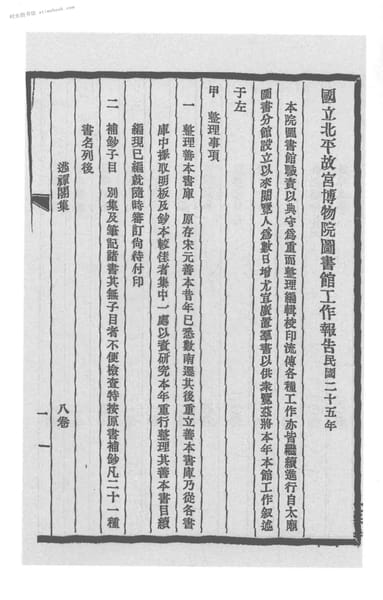 國立北平故宮博物院圖書館工作報告民國二十五年
本院圖書館職責以典守為重而整理編輯校印流傳各種工作亦皆繼續進行自太廟
圖書分館設立以來閱覽人為數日增尤宜廣置羣書以供衆覽茲將本年本館工作叙述
于左
甲 整理事項
一 整理善本書庫 原存宋元善本昔年已悉數南遷其後重立善本書庫乃從各書
庫中採取明板及鈔本較佳者集中一處以資研究本年重行整理其善本書目續
編現已編就隨時審訂尙待付印
二 補鈔子目 別集及筆記諸書其無子目者不便檢查特按原書補鈔凡二十一種
書名列後
逃禪閣集 八卷
一